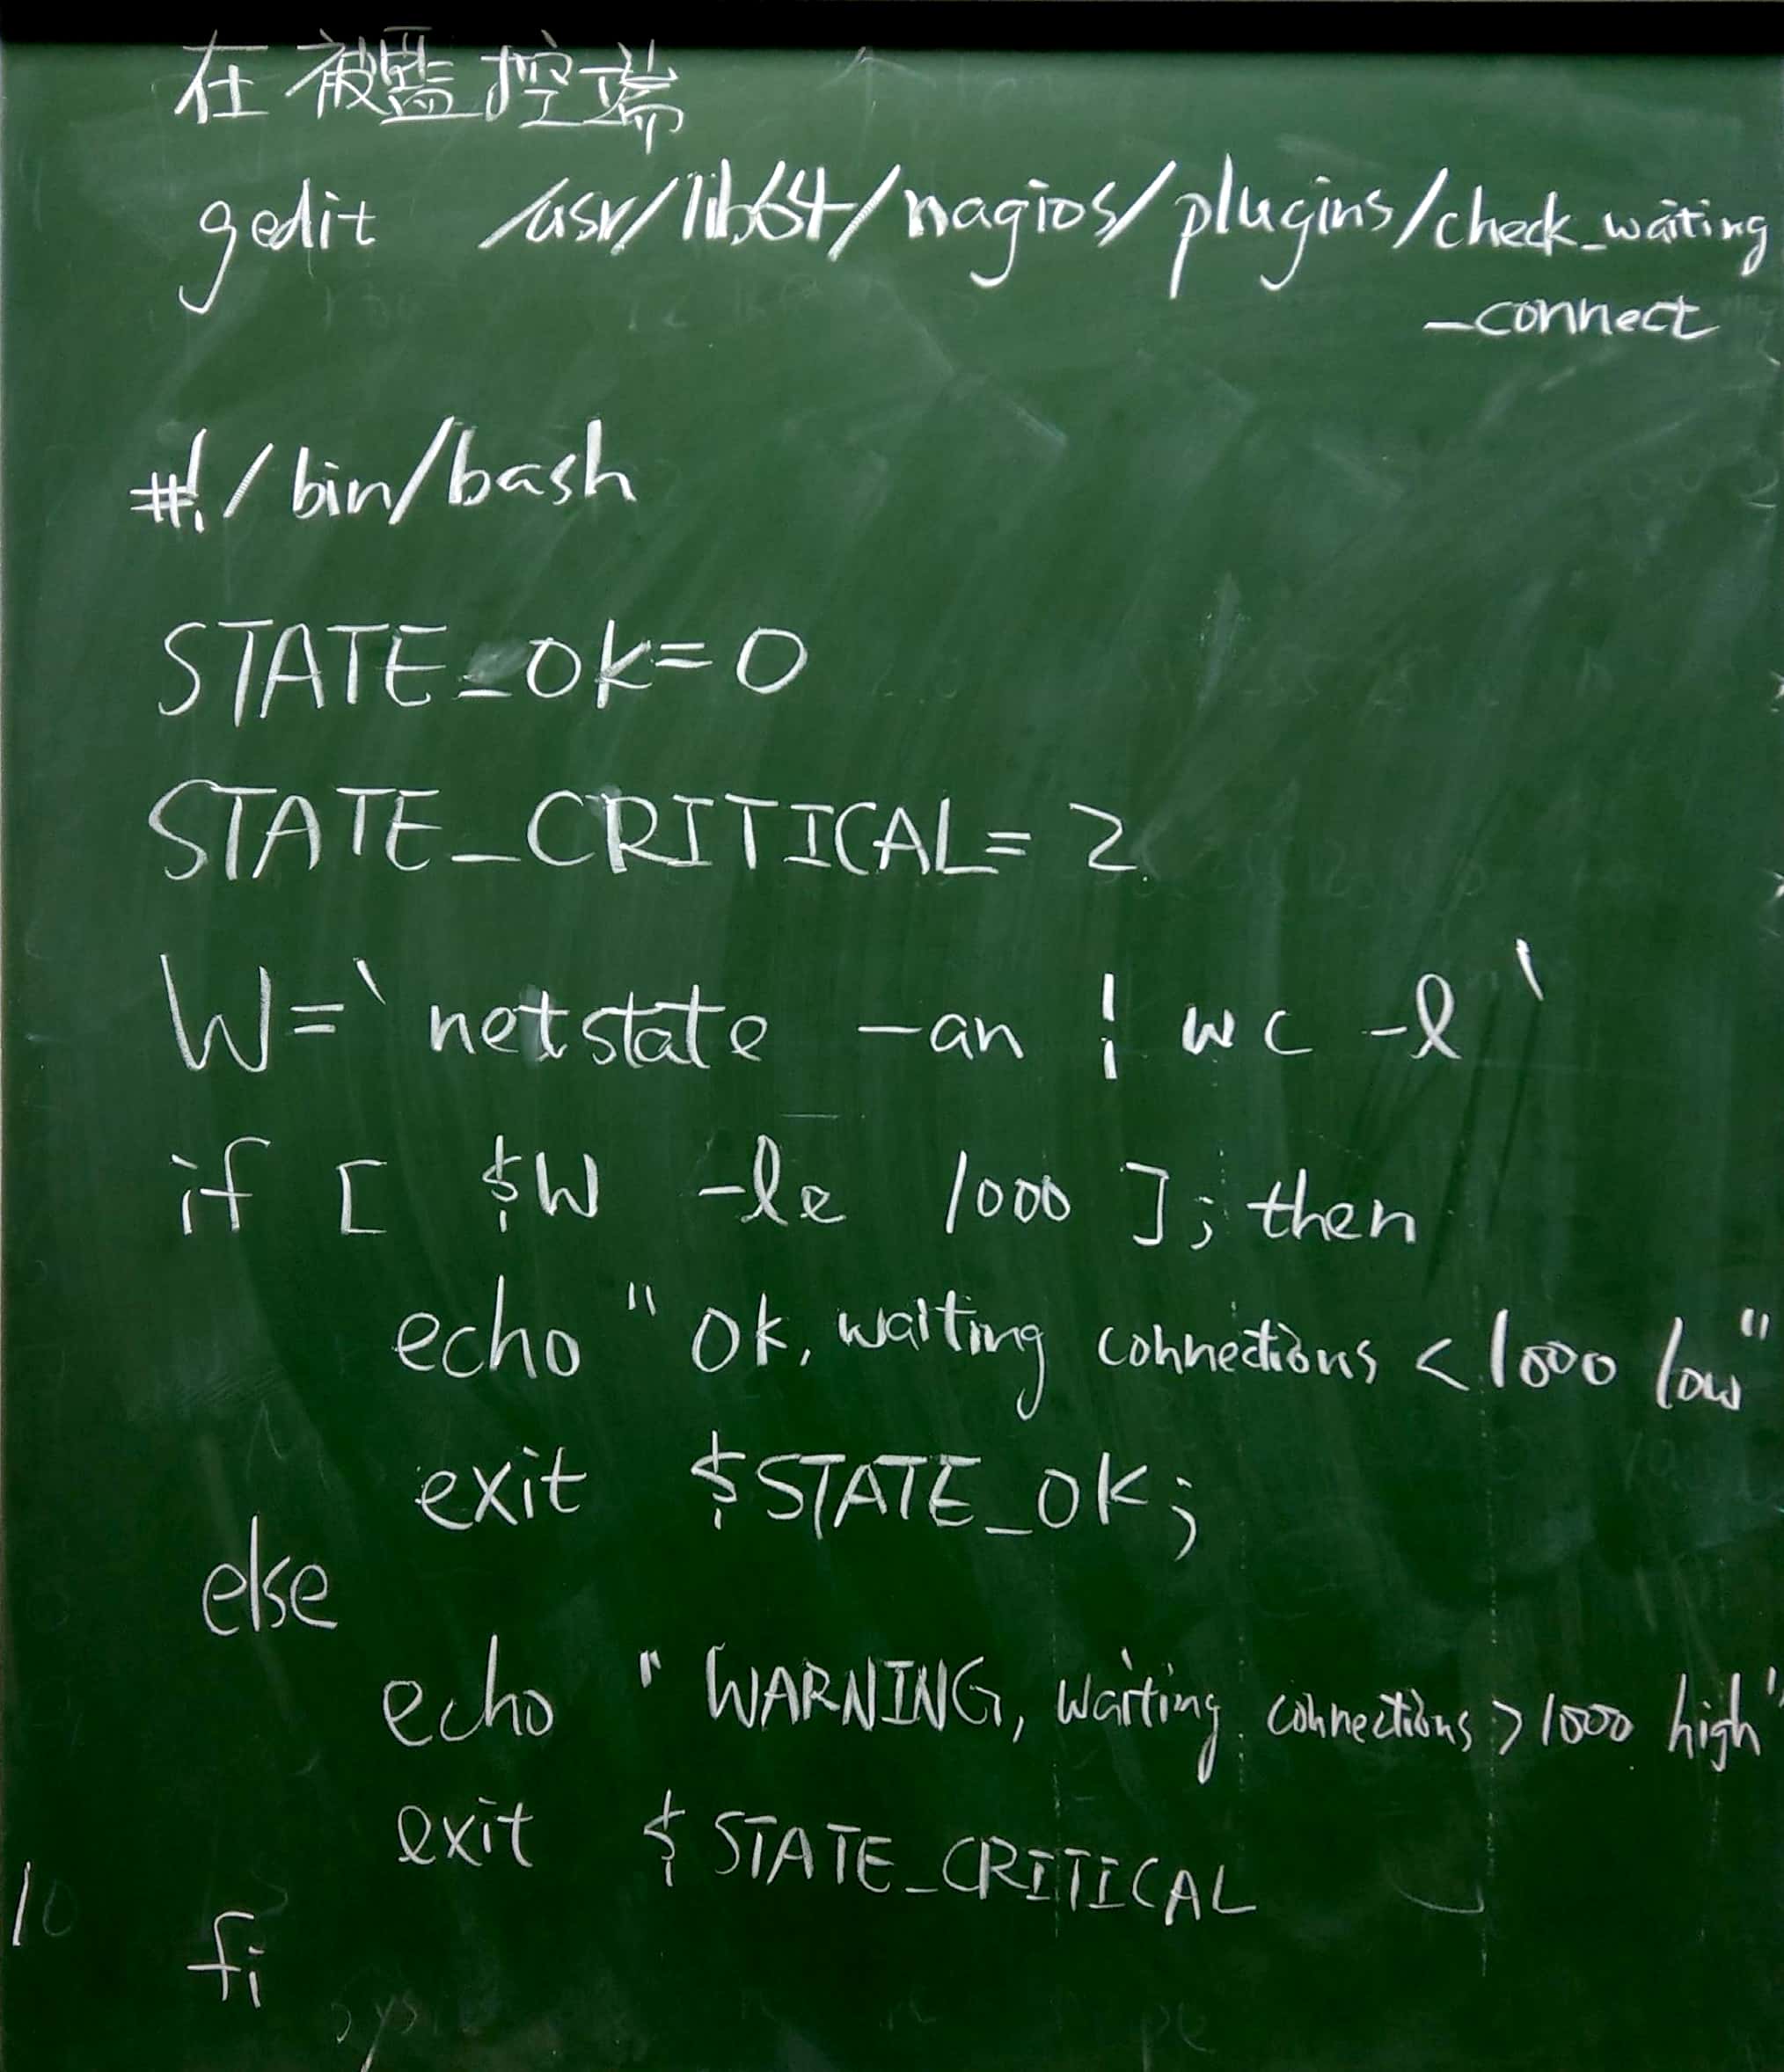 在被監控端
gedit /usr/lib64/nagios/plugins/check_waiting
_connect
#!/bin/bash
STATE_OK=0
STATE_CRITICAL=2
W=`netstate -an | wc -l`
if [ $W -le 1000 ]; then
echo "OK, waiting connections < 1000 low"
exit $STATE_OK;
else
echo "WARNING, waiting connections > 1000 high"
exit $STATE_CRITICAL
10
fi